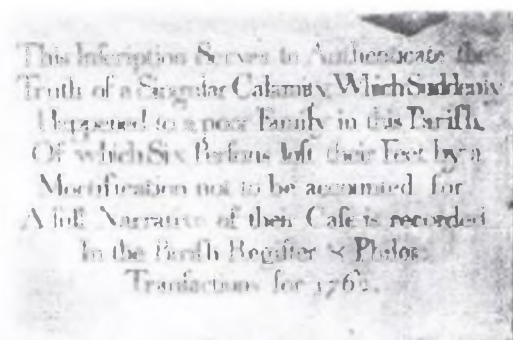 This Inscription Serves to Authenticate the
Truth of a Singular Calamity, Which Suddenly
Happened to a poor Family in this Parish,
Of which Six Persons lost their Feet by a
Mortification not to be accounted for
A full Narrative of their Case is recorded
In the Parish Register & Philos:
Transactions for 1762.